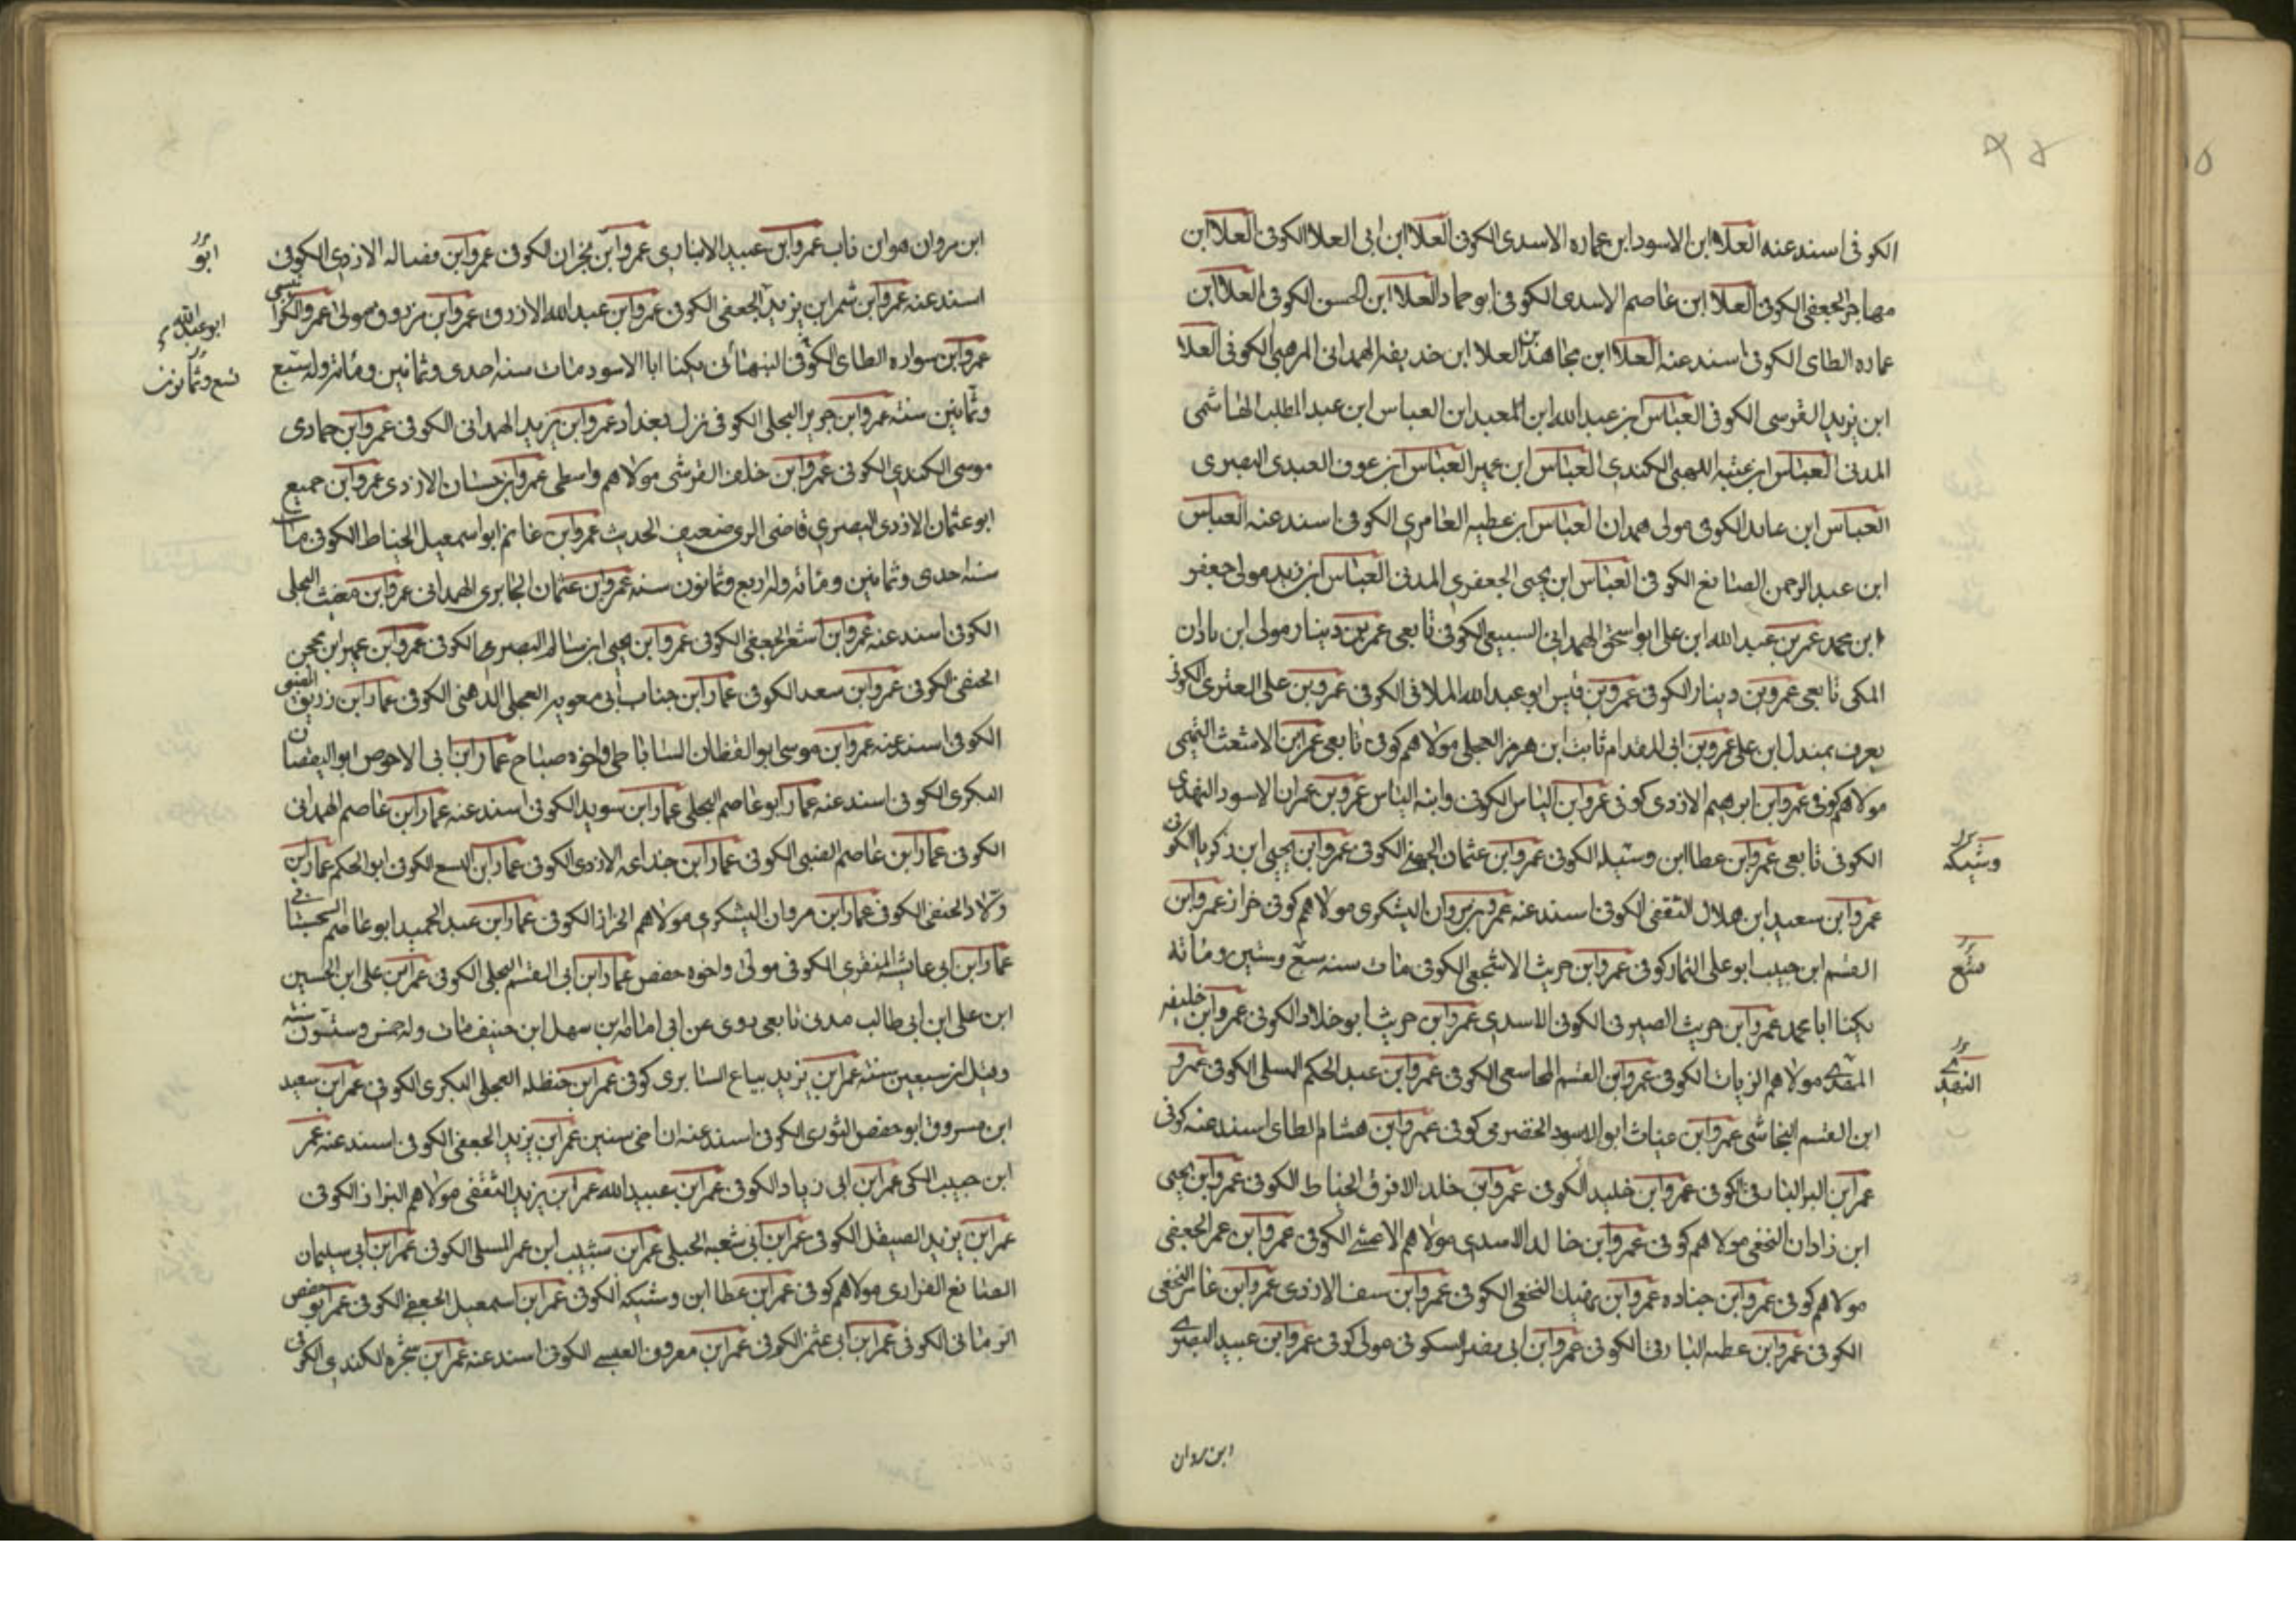 ٩٤
الكوفى اسند عنه العلا ابن الاسود ابن عماره الاسدى الكوفى العلا ابن ابى العلا الكوفى العلا ابن
مهاجر الجعفى الكوفى العلا ابن عاصم الاسدى الكوفى ابو حماد العلا ابن الحسن الكوفى العلا ابن
عماره الطاى الكوفى اسند عنه العلا ابن العلا ابن الهمدانى المرهبى الكوفى العلا
ابن يزيد القوسى الكوفى العباس ابن عبد الله ابن المعبد ابن العباس ابن عبد المطلب الهاشمى
المدنى العباس ابن عتبه اللهبى الكندى العباس ابن عمير العباس ابن عوف العبدى البصرى
العباس ابن عابد الكوفى مولى همدان العباس ابن عطيه العامرى الكوفى اسند عنه العباس
ابن عبد الرحمن الصايغ الكوفى العباس ابن يحيى الجعفرى المدنى العباس ابن زيد مولى جعفر
ابن محمد عمر بن عبد الله ابن على ابو اسحق الهمدانى السبيعى الكوفى تابعى عمر بن دينار مولى ابن باذان
المكى تابعى عمرو بن دينار الكوفى عمرو بن قيس ابو عبد الله الملائى الكوفى عمرو بن على العنزى الكوفى
يعرف بمندل ابن على عمرو بن ابى المقدام ثابت ابن هرمز العجلى مولاهم كوفى تابعى عمر ابن الاشعث التميمى
مولاهم كوفى عمرو ابن ابرهيم الازدى كوفى عمرو ابن الياس الكوفى وابنه الياس عمرو بن عمران الاسود النهدى
الكوفى تابعى عمرو ابن عطا ابن وشيكه الكوفى عمرو ابن عثمان الجهنى الكوفى عمرو ابن يحيى ابن ذكريا الكوفى
وشيكه
عمرو ابن سعيد ابن هلال الثقفى الكوفى اسند عنه عمرو بن مروان اليشكرى مولاهم كوفى خراز عمرو ابن
القسم ابن حبيب ابو على التمار كوفى عمرو ابن حريث الاشجعى الكوفى مات سنه سبع وستين ومائة
يكنا ابا محمد عمرو ابن حريث الصيرفى الكوفى الاسدى عمرو ابن حريث ابو خلاد الكوفى عمرو ابن خليفه
مولاهم الزيات الكوفى عمرو ابن القسم الكوفى عمرو ابن عبد الحكم المسلى الكوفى عمرو
ابن القسم النجاشى عمرو ابن غياث ابو الاسود الحضرمى كوفى عمرو ابن هشام الطاى اسند عنه كوفى
عمر ابن البراء الكوفى عمرو ابن خليد الكوفى عمرو ابن خلد الافرق الحناط الكوفى عمرو ابن يحيى
ابن زاذان النخعى مولاهم كوفى عمرو ابن خالد الاسدى مولاهم الاعشى الكوفى عمرو ابن عمر الجعفى
مولاهم كوفى عمرو ابن جناده عمرو ابن النخعى الكوفى عمرو ابن سيف الازدى عمرو ابن النخعى
الكوفى عمرو ابن عطيه الكوفى عمرو ابن ابى نصر السكونى مولى كوفى عمرو ابن عبيد البصرى
ابن مروان
ابن مروان عمرو ابن عبيد الانبارى عمرو ابن نجران الكوفى عمرو ابن فضاله الازدى الكوفى
ابو
اسند عنه عمرو ابن شمر ابن يزيد الجعفى الكوفى عمرو ابن عبد الله الازرق عمرو ابن مرزوق مولى
ابو عبد الله
عمرو ابن سواره الطاى الكوفى النبهانى يكنا ابا الاسود مات سنه احدى وثمانين ومائة وله سبع
تسع وثمانون
وثمانين سنه عمرو ابن جرير البجلى الكوفى نزل بغداد عمرو ابن يزيد الهمدانى الكوفى عمرو ابن حمادى
موسى الكندى الكوفى عمرو ابن خلف القرشى مولاهم واسطى عمرو ابن حسان الازدى عمرو ابن جميع
ابو عثمان الازدى البصرى قاضى الرى ضعيف الحديث عمرو ابن غانم ابو اسمعيل الحناط الكوفى مات
سنه احدى وثمانين ومائه وله اربع وثمانون سنه عمرو ابن عثمان الجابرى الهمدانى عمرو ابن البجلى
الكوفى اسند عنه عمرو ابن الجعفى الكوفى عمرو ابن يحيى ابن سالم البصرى الكوفى عمرو ابن عمير ابن محجن
الحنفى الكوفى عمرو ابن سعد الكوفى عمار ابن جناب ابى معويه العجلى الدهنى الكوفى عمار ابن زريق الضبى
الكوفى اسند عنه عمرو ابن موسى ابو اليقظان الساباطى واخوه صباح عمار ابن ابى الاحوص ابو اليقضان
البكرى الكوفى اسند عنه عمار ابو عاصم البجلى عمار ابن سويد الكوفى اسند عنه عمار ابن عاصم الهمدانى
الكوفى عمار ابن عاصم الضبى الكوفى عمار ابن جذاعه الازدى الكوفى عمار ابن اليسع الكوفى ابو الحكم عمار ابن
الحنفى الكوفى عمار ابن مروان اليشكرى مولاهم الخزاز الكوفى عمار ابن عبد الحميد ابو عاصم السجستانى
عمار ابن ابى عايشه المنقرى الكوفى مولى واخوه حفص عمار ابن ابى القسم البجلى الكوفى عمر ابن على ابن الحسين
ابن على ابن ابى طالب مدنى تابعى روى عن ابى امامه بن سهل ابن حنيف مات وله خمس وستون سنه
وقيل ابن سبعين سنه عمر ابن يزيد بياع السابرى كوفى عمر ابن حنظله العجلى البكرى الكوفى عمر ابن سعيد
ابن مسروق ابو حفص الثورى الكوفى اسند عنه عمر ابن يزيد الجعفى الكوفى اسند عنه عمر
ابن حبيب المكى عمر ابن ابى زياد الكوفى عمر ابن عبيد الله عمر ابن يزيد الثقفى مولاهم البزاز الكوفى
عمر ابن يزيد الصيقل الكوفى عمر ابن ابى شعبه الحلبى عمر ابن شبيب ابن عمر المسلى الكوفى عمر ابن ابى سليمان
الصايغ الفزارى مولاهم كوفى عمر ابن عطا ابن وشيكه الكوفى عمر ابن اسمعيل الجعفى الكوفى عمر ابو حفص
الرمانى الكوفى عمر ابن ابى عثمن الكوفى عمر ابن معروف العبسى الكوفى اسند عنه عمر ابن شجره الكندى الكوفى